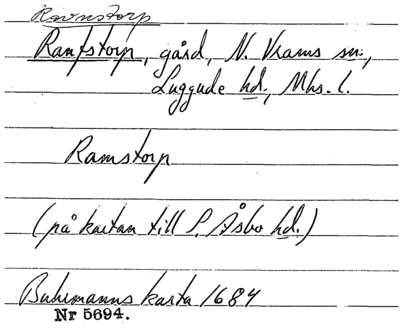 Ravnstorp
Ramstorp, gård, N. Vrams sn.,
Luggude hd., Mhs. l.
Ramstorp
(på kartan till S. Åsbo hd.)
Buhrmanns karta 1684
Nr 5694.